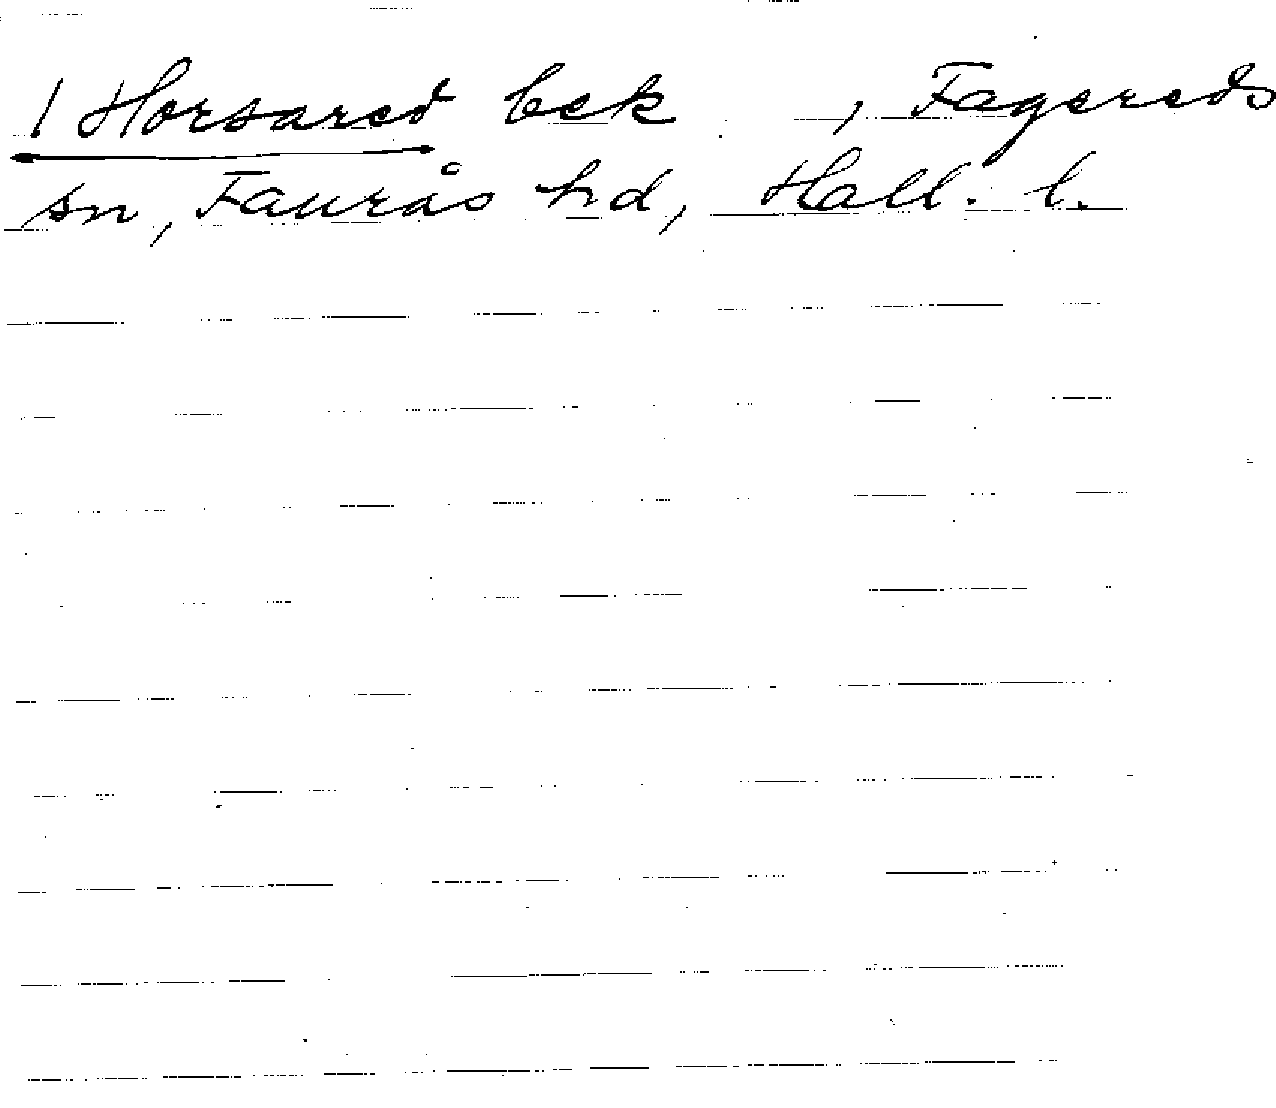 / Horsared bek , Fagereds
sn, Faurås hd, Hall. l.